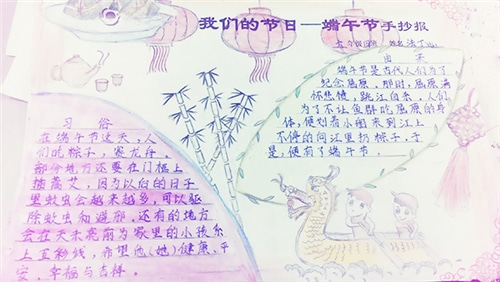 我们的节日—端午节手抄报
由来
端午节是古代人们为了
纪念屈原,那时,屈原满
怀悲愤,跳江自杀,人们
为了不让鱼虾吃屈原的身
体,便划着小船来到江上
不停的向江里扔粽子,于
是,便有了端午节。
习俗
在端午节这天,人
们吃粽子,赛龙舟
部分地方还要在门槛上
插蒿艾,因为以后的日子
里蚊虫会越来越多,可以驱
除蚊虫和避邪,还有的地方
会在天未亮前为家里的小孩系
上五彩线,希望他(她)健康、平
安、幸福与吉祥。